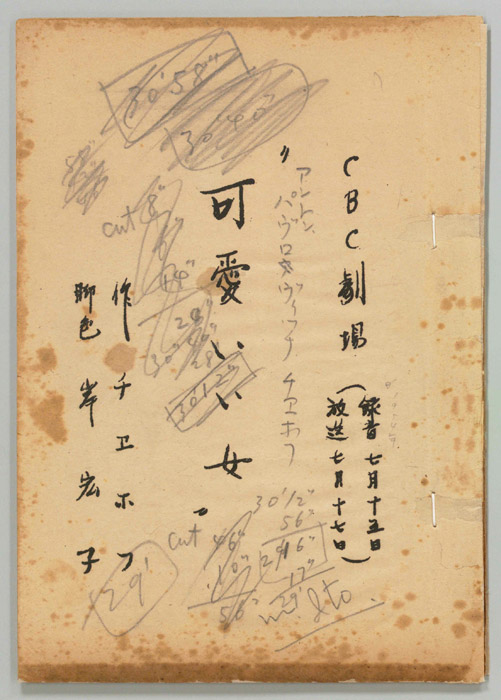 CBC劇場
(録音七月十五日
放送七月十七日)
アントン、
パヴロヴィッチ チエホフ
"可愛いい女"
作 チエホフ
脚色 岸宏子
30'58"
30'40"
cut 8"
30'12"
cut 46"
10"
56"
30'12"
56"
29'16"
17"
29'